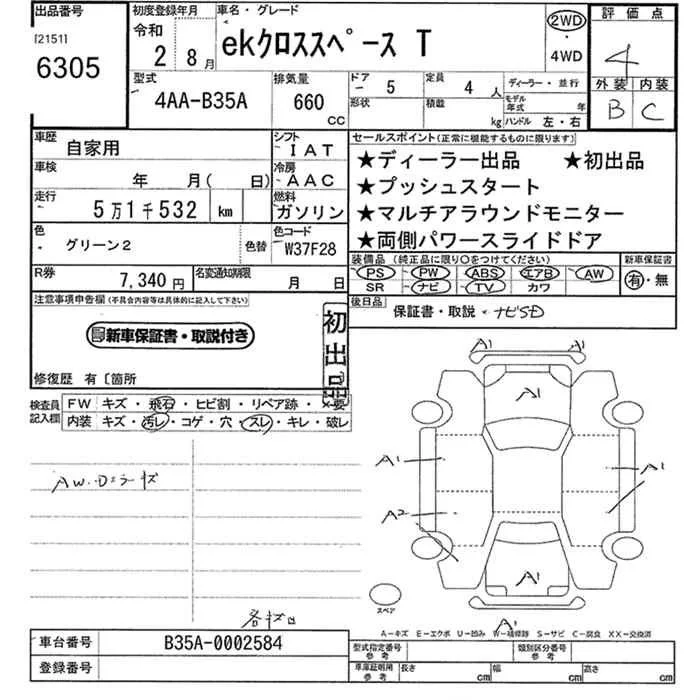 出品番号
[2151]
6305
初度登録年月
令和
2 8月
車名・グレード
ekクロススペース T
2WD
・
4WD
評価点
4
外装 内装
B C
型式
4AA-B35A
排気量
660
CC
ドア 5
形状
定員 4 人
積載 kg
ディーラー・並行
モデル年式 年
ハンドル 左・右
車歴
自家用
シフト
IAT
車検
年 月( 日)
冷房
AAC
走行
5万1千532 km
燃料
ガソリン
色
グリーン2
色替
色コード
W37F28
R券
7,340 円
名変通知期限
月 日
セールスポイント(正常に機能するものに限ります)
★ディーラー出品 ★初出品
★プッシュスタート
★マルチアラウンドモニター
★両側パワースライドドア
装備品 (純正品に限り○をつけてください)
PS PW ABS エアB AW
SR ナビ TV カワ
新車保証書
有・無
後日品
保証書・取説・ナビSD
注意事項申告欄(不具合内容等は具体的に記入して下さい)
新車保証書・取説付き
初出品
修復歴 有〔箇所
検査員記入欄
FW キズ・飛石・ヒビ割・リペア跡・×要
内装 キズ・汚レ・コゲ・穴・スレ・キレ・破レ
A1
A1
A1
A1
A1
A2
A1
A1
スペア
A-キズ E-エクボ U-凹み W-補修跡 S-サビ C-腐食 XX-交換済
車台番号
B35A-0002584
登録番号
型式指定番号
参考
類別区分番号
参考
車庫証明用
参考
長さ cm
幅 cm
高さ cm